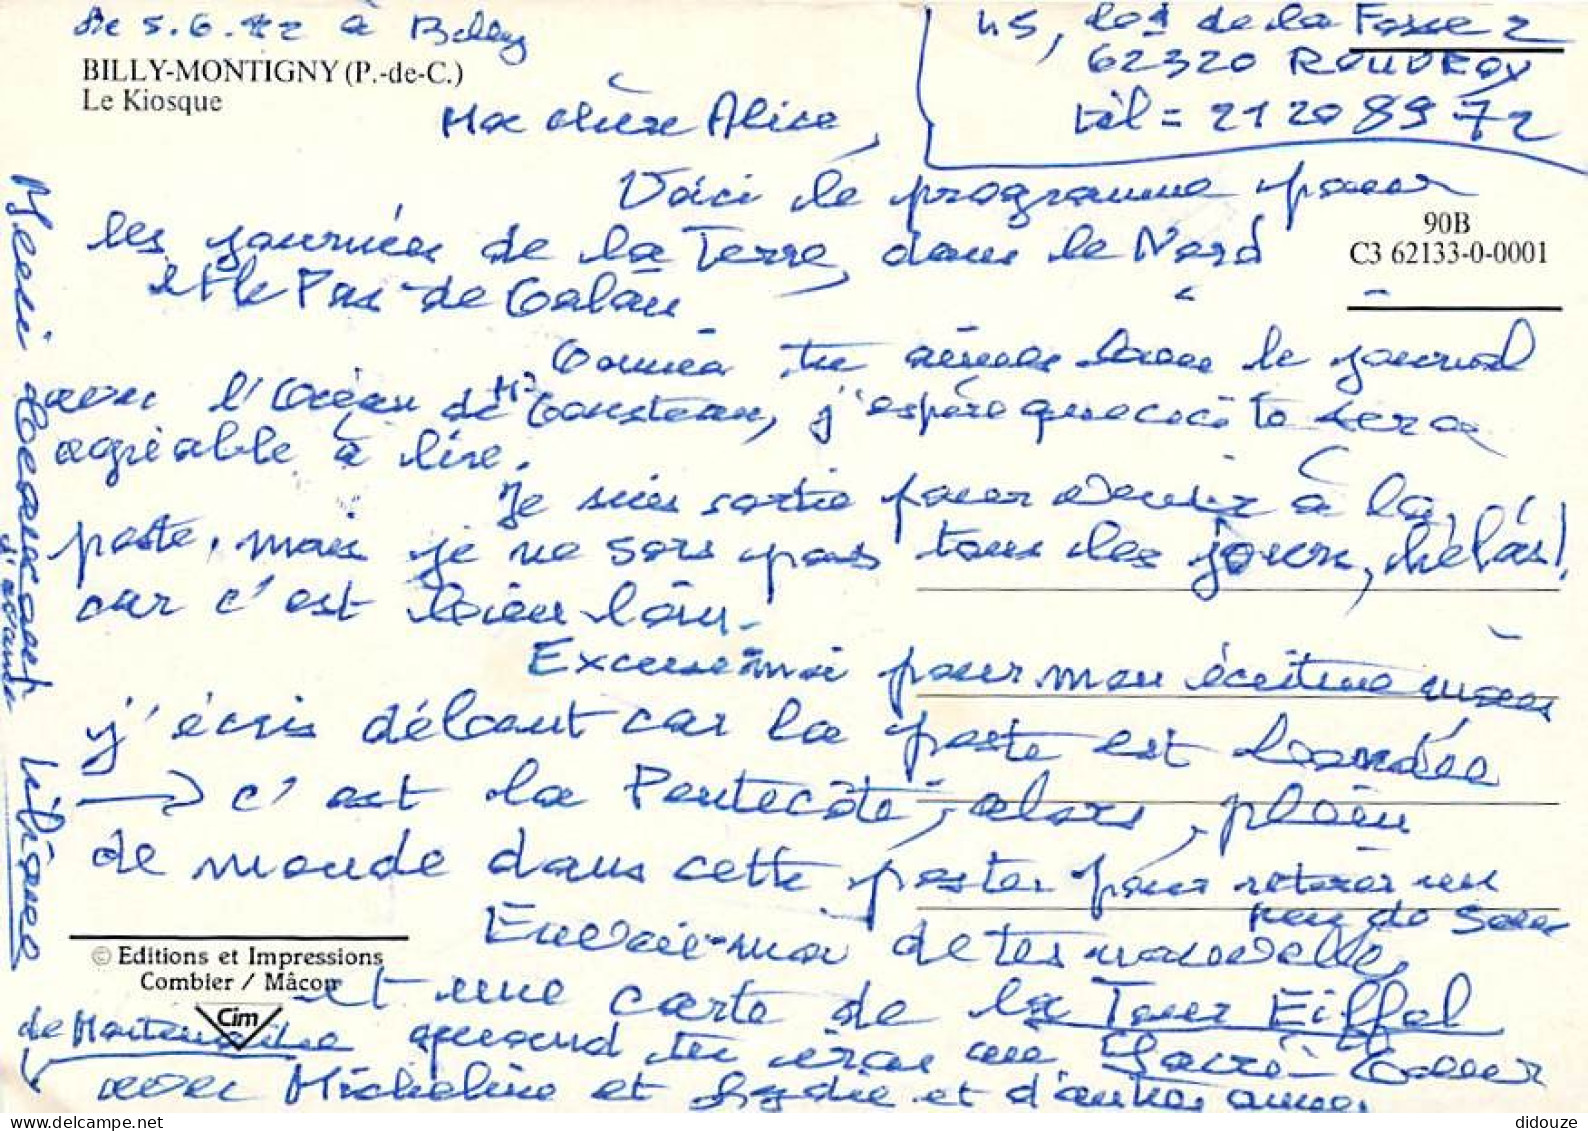 le 5.6.92 à Billy
45, de la Fosse 2
62320 ROUVROY
tél = 21 20 89 72
BILLY-MONTIGNY (P.-de-C.)
Le Kiosque
Ma chère Alice,
Voici le programme pour
les journées de la Terre, dans le Nord
et le Pas-de-Calais
90B
C3 62133-0-0001
Comme tu aimes bien le journal
avec l'Océan de Mr Cousteau, j'espère que ceci te sera
agréable à lire.
Je suis sortie pour venir à la
poste, mais je ne sors pas tous les jours, hélas!
car c'est bien loin.
Excuse-moi pour mon écriture mais
j'écris debout car la poste est bondée
→ c'est la Pentecôte, alors, plein
de monde dans cette poste, pour retirer un
peu de sous
Envoie-moi de tes nouvelles,
et une carte de la Tour Eiffel
de Montmartre quand tu iras au Sacré-Coeur
avec Micheline et Lydie et d'autres amies
Merci beaucoup
d'avance
© Editions et Impressions
Combier / Mâcon
Cim
didouze